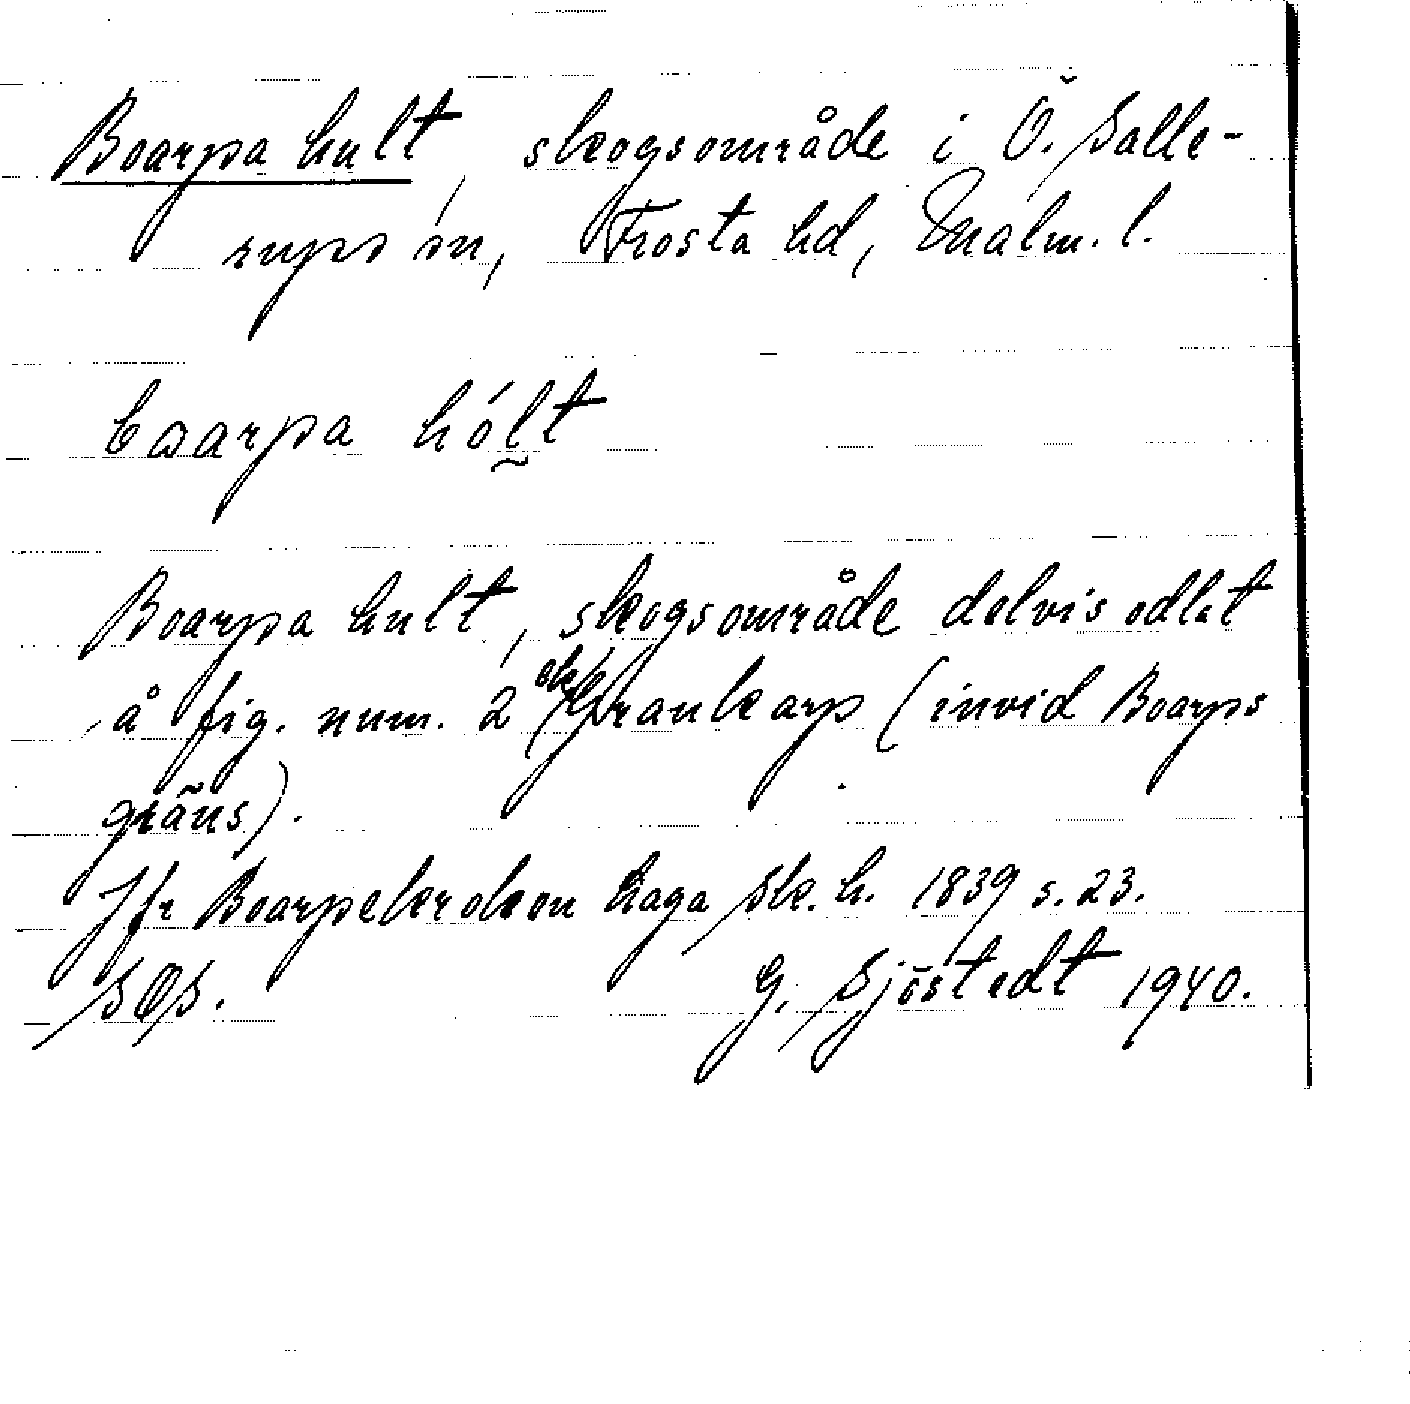 Boarpa hult, skogsområde i Ö. Salle-
rups sn, Frosta hd, Malm. l.
boarpa hólt
Boarpa hult, skogsområde delvis odlat
å fig. num. 2 Frankarp (invid Boarps
gräns).
Jfr Boarpekroken haga Sk. h. 1839 s. 23.
G. Sjöstedt 1940.